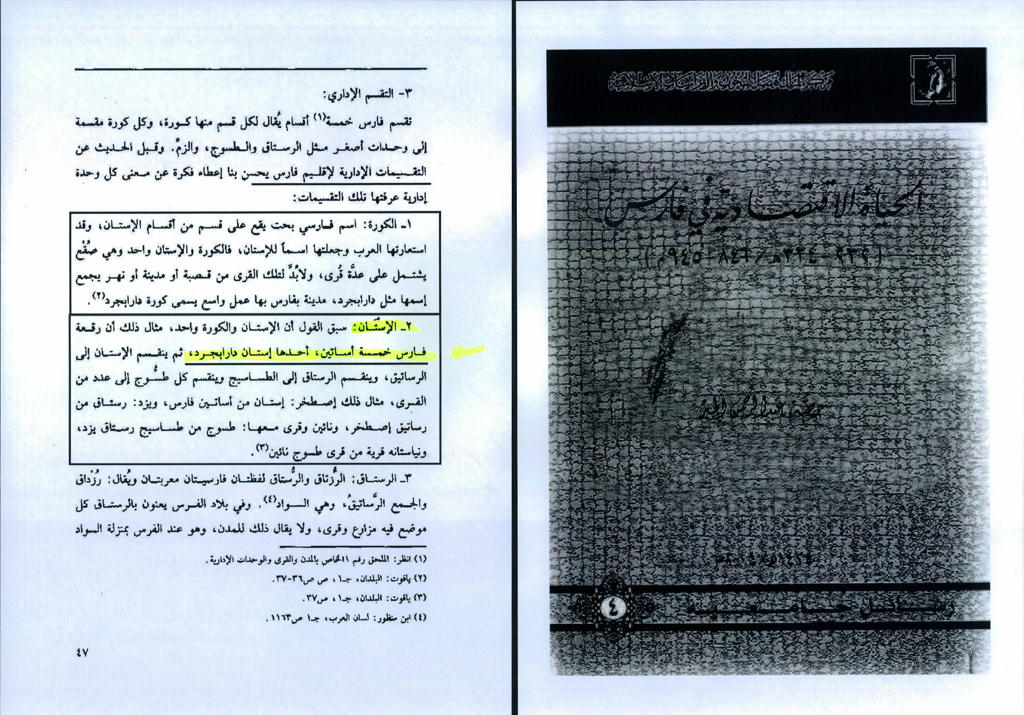 ٣- التقسم الإداري:
تقسم فارس خمسة(١) أقسام يُقال لكل قسم منها كورة، وكل كورة مقسمة
إلى وحدات أصغر مثل الرستاق والطسوج، والزمّ. وقبل الحديث عن
التقسيمات الإدارية لإقليم فارس يحسن بنا إعطاء فكرة عن معنى كل وحدة
إدارية عرفتها تلك التقسيمات:
١ـ الكورة: اسم فارسي بحت يقع على قسم من أقسام الإستان، وقد
استعارتها العرب وجعلتها اسماً للإستان، فالكورة والإستان واحد وهي صُقْع
يشتمل على عدَّة قُرى، ولابُدَّ لتلك القرى من قصبة أو مدينة أو نهر يجمع
إسمها مثل دارابجرد، مدينة بفارس بها عمل واسع يسمى كورة دارابجرد(٢).
٢ـ الإستان: سبق القول أن الإستان والكورة واحد، مثال ذلك أن رقعة
فارس خمسة أساتين، أحدها إستان دارابجرد، ثم ينقسم الإستان إلى
الرساتيق، وينقسم الرستاق إلى الطساسيج وينقسم كل طسُّوج إلى عدد من
القرى، مثال ذلك إصطخر: إستان من أساتين فارس، ويزد: رستاق من
رساتيق إصطخر، ونائين وقرى معها: طسوج من طساسيج رستاق يزد،
ونياستانه قرية من قرى طسوج نائين(٣).
٣ـ الرستاق: الرُّزتاق والرُّستاق لفظتان فارسيتان معربتان ويُقال: رُزْداق
والجمع الرَّساتيقُ، وهي السواد(٤). وفي بلاد الفرس يعنون بالرستاق كل
موضع فيه مزارع وقرى، ولا يقال ذلك للمدن، وهو عند الفرس بمنزلة السواد
(١) انظر: الملحق رقم ١١ الخاص بالمدن والقرى والوحدات الإدارية.
(٢) ياقوت: البلدان، جـ١، ص ص٣٦-٣٧.
(٣) ياقوت: البلدان، جـ١، ص٣٧.
(٤) ابن منظور: لسان العرب، جـ١ ص١١٦٣.
٤٧
الحياة الاقتصادية في فارس
رسائل جامعية
٤